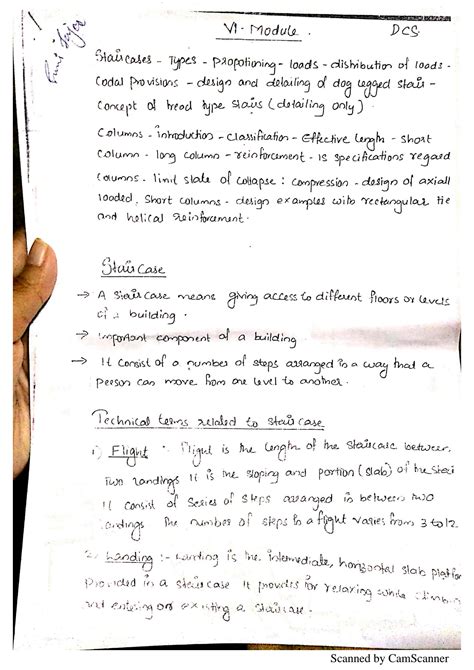 VI - Module. DCS
Staircases - Types - Propotioning - loads - distribution of loads -
Codal Provisions - design and detailing of dog legged stair -
Concept of tread type stairs (detailing only).
Columns - Introduction - Classification - Effective length - Short
Column - long column - reinforcement - IS specifications regard
Columns - limit state of collapse : compression - design of axiall
loaded, short columns - design examples with rectangular tie
and helical reinforcement.
Staircase
→ A staircase means giving access to different floors or levels
of a building.
→ Important component of a building
→ It consist of a number of steps arranged in a way that a
person can move from one level to another.
Technical terms related to staircase
1) Flight : Flight is the length of the staircase between
Two landings It is the sloping and portion (slab) of the
It consist of series of steps arranged in between two
landings The number of steps in a flight varies from 3 to 12.
2) Landing :- Landing is the intermediate, horizontal slab platfor
provided in a staircase It provides for relaxing while
and entering or existing a staircase.
Scanned by CamScanner